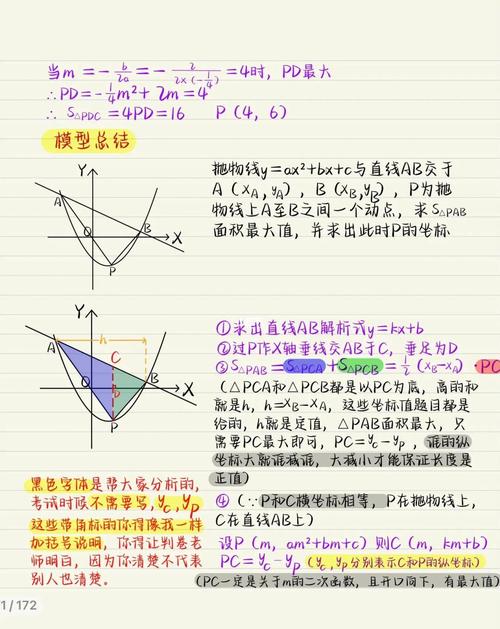 当m=-b/2a=-2/2×(-1/4)=4时，PD最大
∴PD=-1/4m²+2m=4
∴ S△PDC=4PD=16 P(4,6)
模型总结
抛物线y=ax²+bx+c与直线AB交于
A(xA,yA)，B(xB,yB)，P为抛
物线上A至B之间一个动点，求S△PAB
面积最大值，并求出此时P的坐标
Y
A
O
B
X
P
Y
A
h
C
O
D
B
X
P
①求出直线AB解析式y=kx+b
②过P作X轴垂线交AB于C，垂足为D
③S△PAB=S△PCA+S△PCB=1/2(xB-xA)·PC
(△PCA和△PCB都是以PC为底，高的和
就是h，h=xB-xA，这些坐标值题目都是
给的，h就是定值，△PAB面积最大，只
需要PC最大即可，PC=yC-yP，谁的纵
坐标大就谁减谁，大减小才能保证长度是
正值)
④(∵P和C横坐标相等，P在抛物线上，
C在直线AB上)
设P(m，am²+bm+c)则C(m，km+b)
PC=yC-yP(yC，yP分别表示C和P的纵坐标)
(PC一定是关于m的二次函数，且开口向下，有最大值)
黑色字体是帮大家分析的，
考试时候不需要写，yC，yP
这些带角标的你得像我一样
加括号说明，你得让判卷老
师明白，因为你清楚不代表
别人也清楚。
1/172